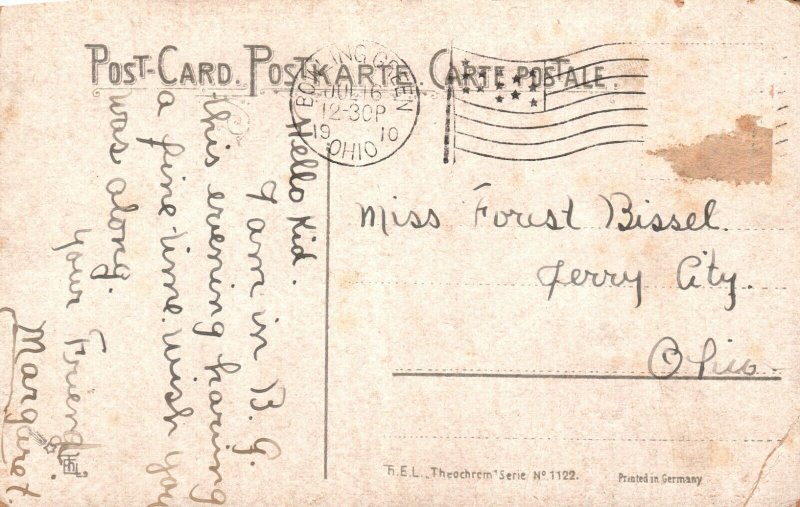 POST-CARD. POSTKARTE. CARTE POSTALE.
BOWLING GREEN
JUL 16
12-30P
1910
OHIO
Hello Kid.
I am in B. G.
this evening having
a fine time. wish you
was along.
your Friend
Margaret.
Miss Forest Bissel.
Jerry City.
Ohio.
T.H.E.L. „Theochrom" Serie No. 1122.
Printed in Germany